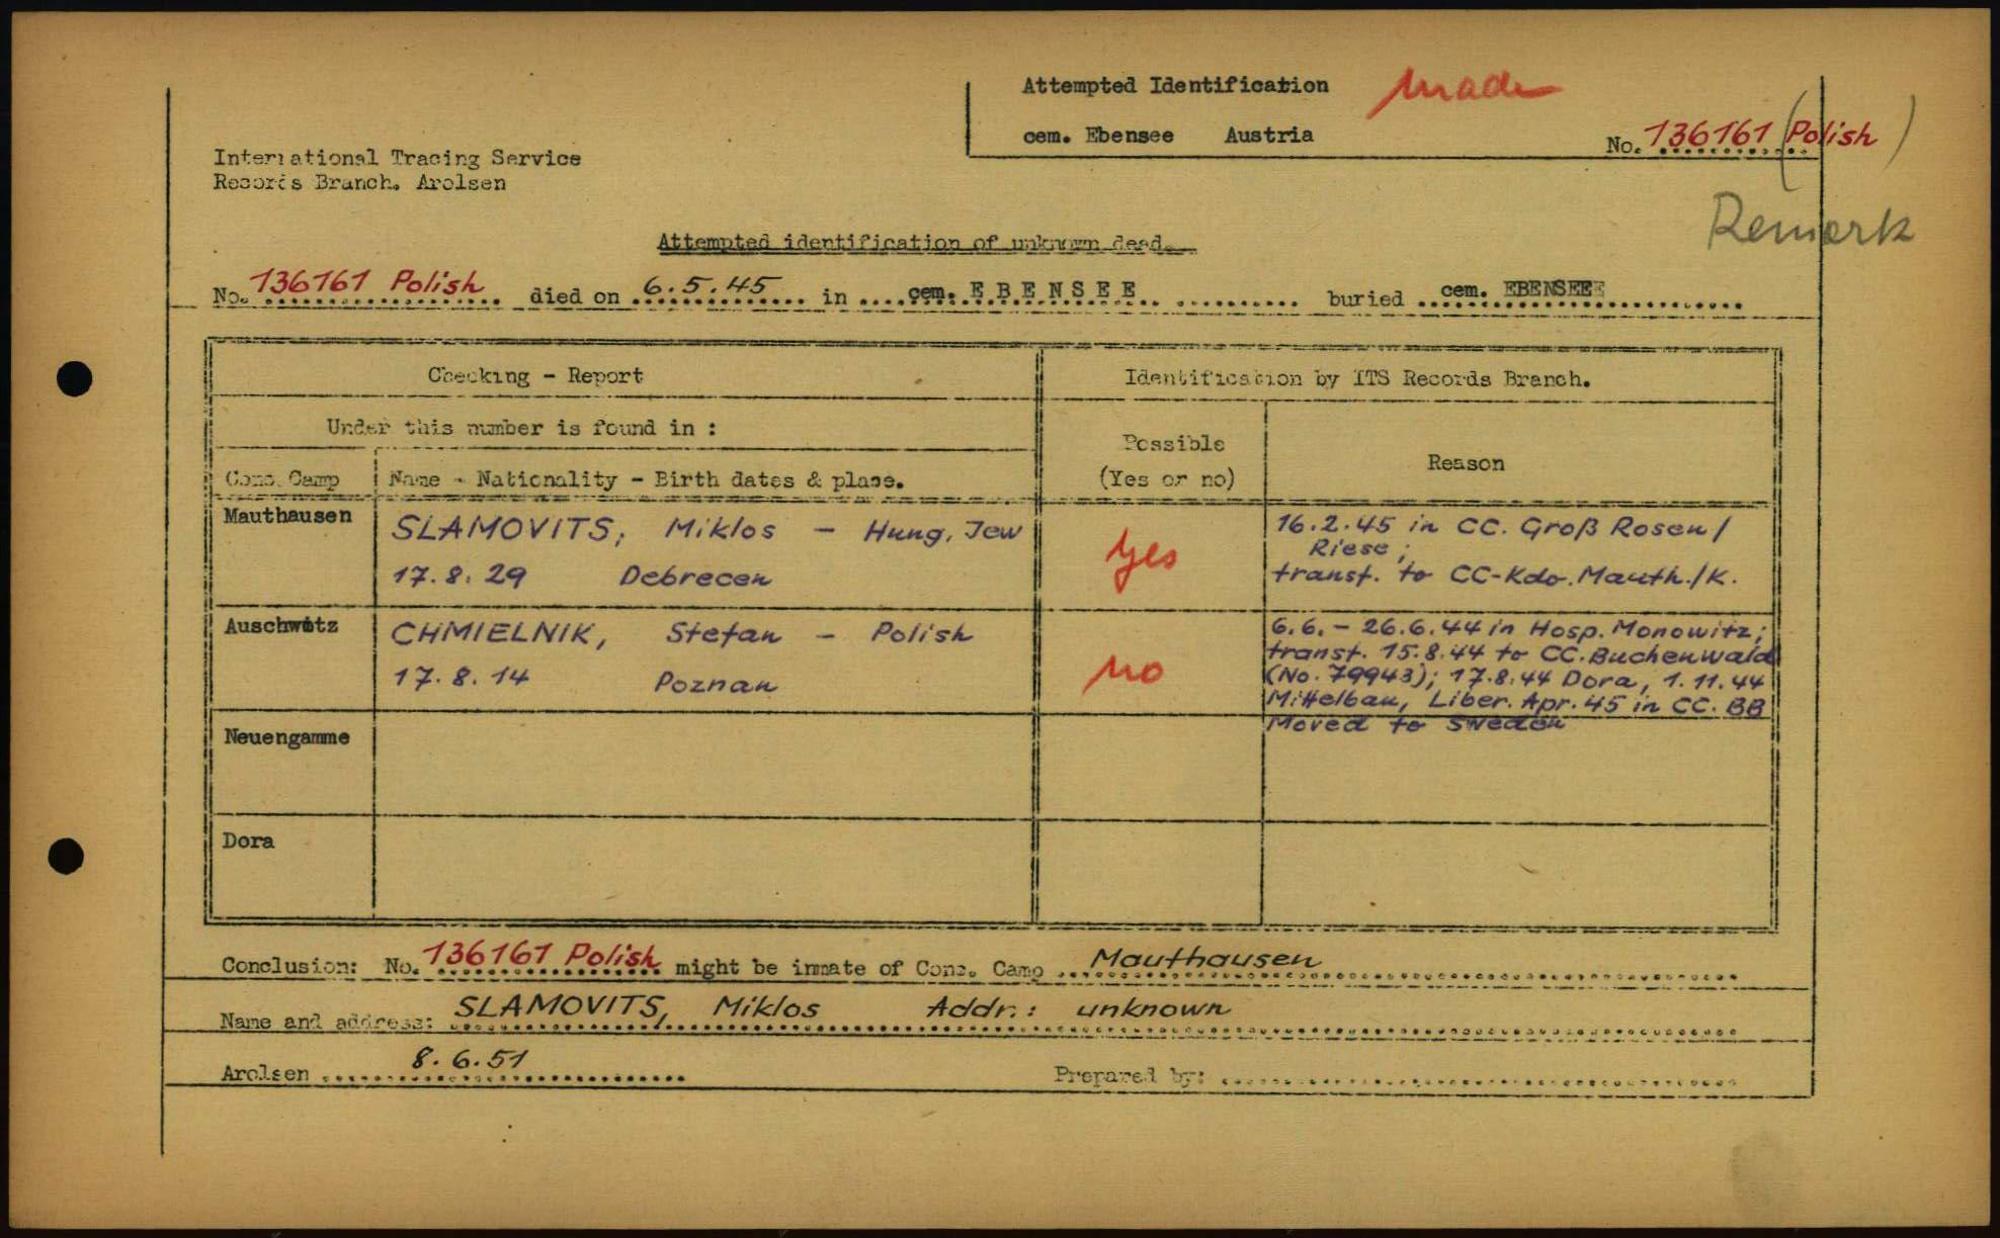 Attempted Identification made
cem. Ebensee Austria
No. 136161 (Polish)
International Tracing Service
Records Branch. Arolsen
Remark
Attempted identification of unknown dead.
No. 136161 Polish died on 6.5.45 in cem. EBENSEE buried cem. EBENSEE
Checking - Report
Identification by ITS Records Branch.
Under this number is found in :
Possible
(Yes or no)
Reason
Conc. Camp
Name - Nationality - Birth dates & place.
Mauthausen
SLAMOVITS, Miklos - Hung. Jew
17.8.29 Debrecen
yes
16.2.45 in CC. Groß Rosen/
Riese;
transf. to CC-Kdo. Mauth./K.
Auschwitz
CHMIELNIK, Stefan - Polish
17.8.14 Poznan
no
6.6. - 26.6.44 in Hosp. Monowitz;
transf. 15.8.44 to CC. Buchenwald
(No. 79943); 17.8.44 Dora, 1.11.44
Mittelbau, Liber. Apr. 45 in CC. BB
Moved to Sweden
Neuengamme
Dora
Conclusion: No. 136161 Polish might be inmate of Conc. Camp Mauthausen
Name and address: SLAMOVITS, Miklos Addr.: unknown
Arolsen 8.6.51
Prepared by: